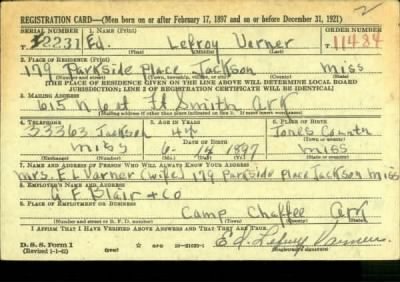 2
REGISTRATION CARD—(Men born on or after February 17, 1897 and on or before December 31, 1921)
SERIAL NUMBER 1. NAME (Print) ORDER NUMBER
T. 12231 Ed. Lefroy Varner 11434
(First) (Middle) (Last)
2. PLACE OF RESIDENCE (Print)
179 Parkside Place Jackson Miss
(Number and street) (Town, township, village, or city) (County) (State)
[THE PLACE OF RESIDENCE GIVEN ON THE LINE ABOVE WILL DETERMINE LOCAL BOARD
JURISDICTION; LINE 2 OF REGISTRATION CERTIFICATE WILL BE IDENTICAL]
3. MAILING ADDRESS
615 N 6st Ft Smith Ark
[Mailing address if other than place indicated on line 2. If same insert word same]
4. TELEPHONE 5. AGE IN YEARS 6. PLACE OF BIRTH
33363 Jackson 44 Jones County
DATE OF BIRTH (Town or county)
Miss 6 14 1897 Miss
(Exchange) (Number) (Mo.) (Day) (Yr.) (State or country)
7. NAME AND ADDRESS OF PERSON WHO WILL ALWAYS KNOW YOUR ADDRESS
Mrs. E L Varner (wife) 179 Parkside Place Jackson Miss
8. EMPLOYER'S NAME AND ADDRESS
Blair + Co
9. PLACE OF EMPLOYMENT OR BUSINESS
Camp Chaffee Ark
(Number and street or R. F. D. number) (Town) (County) (State)
I AFFIRM THAT I HAVE VERIFIED ABOVE ANSWERS AND THAT THEY ARE TRUE.
D. S. S. Form 1
(Revised 1-1-42) (over) 16—21630-1
Ed. Lefroy Varner
(Registrant's signature)